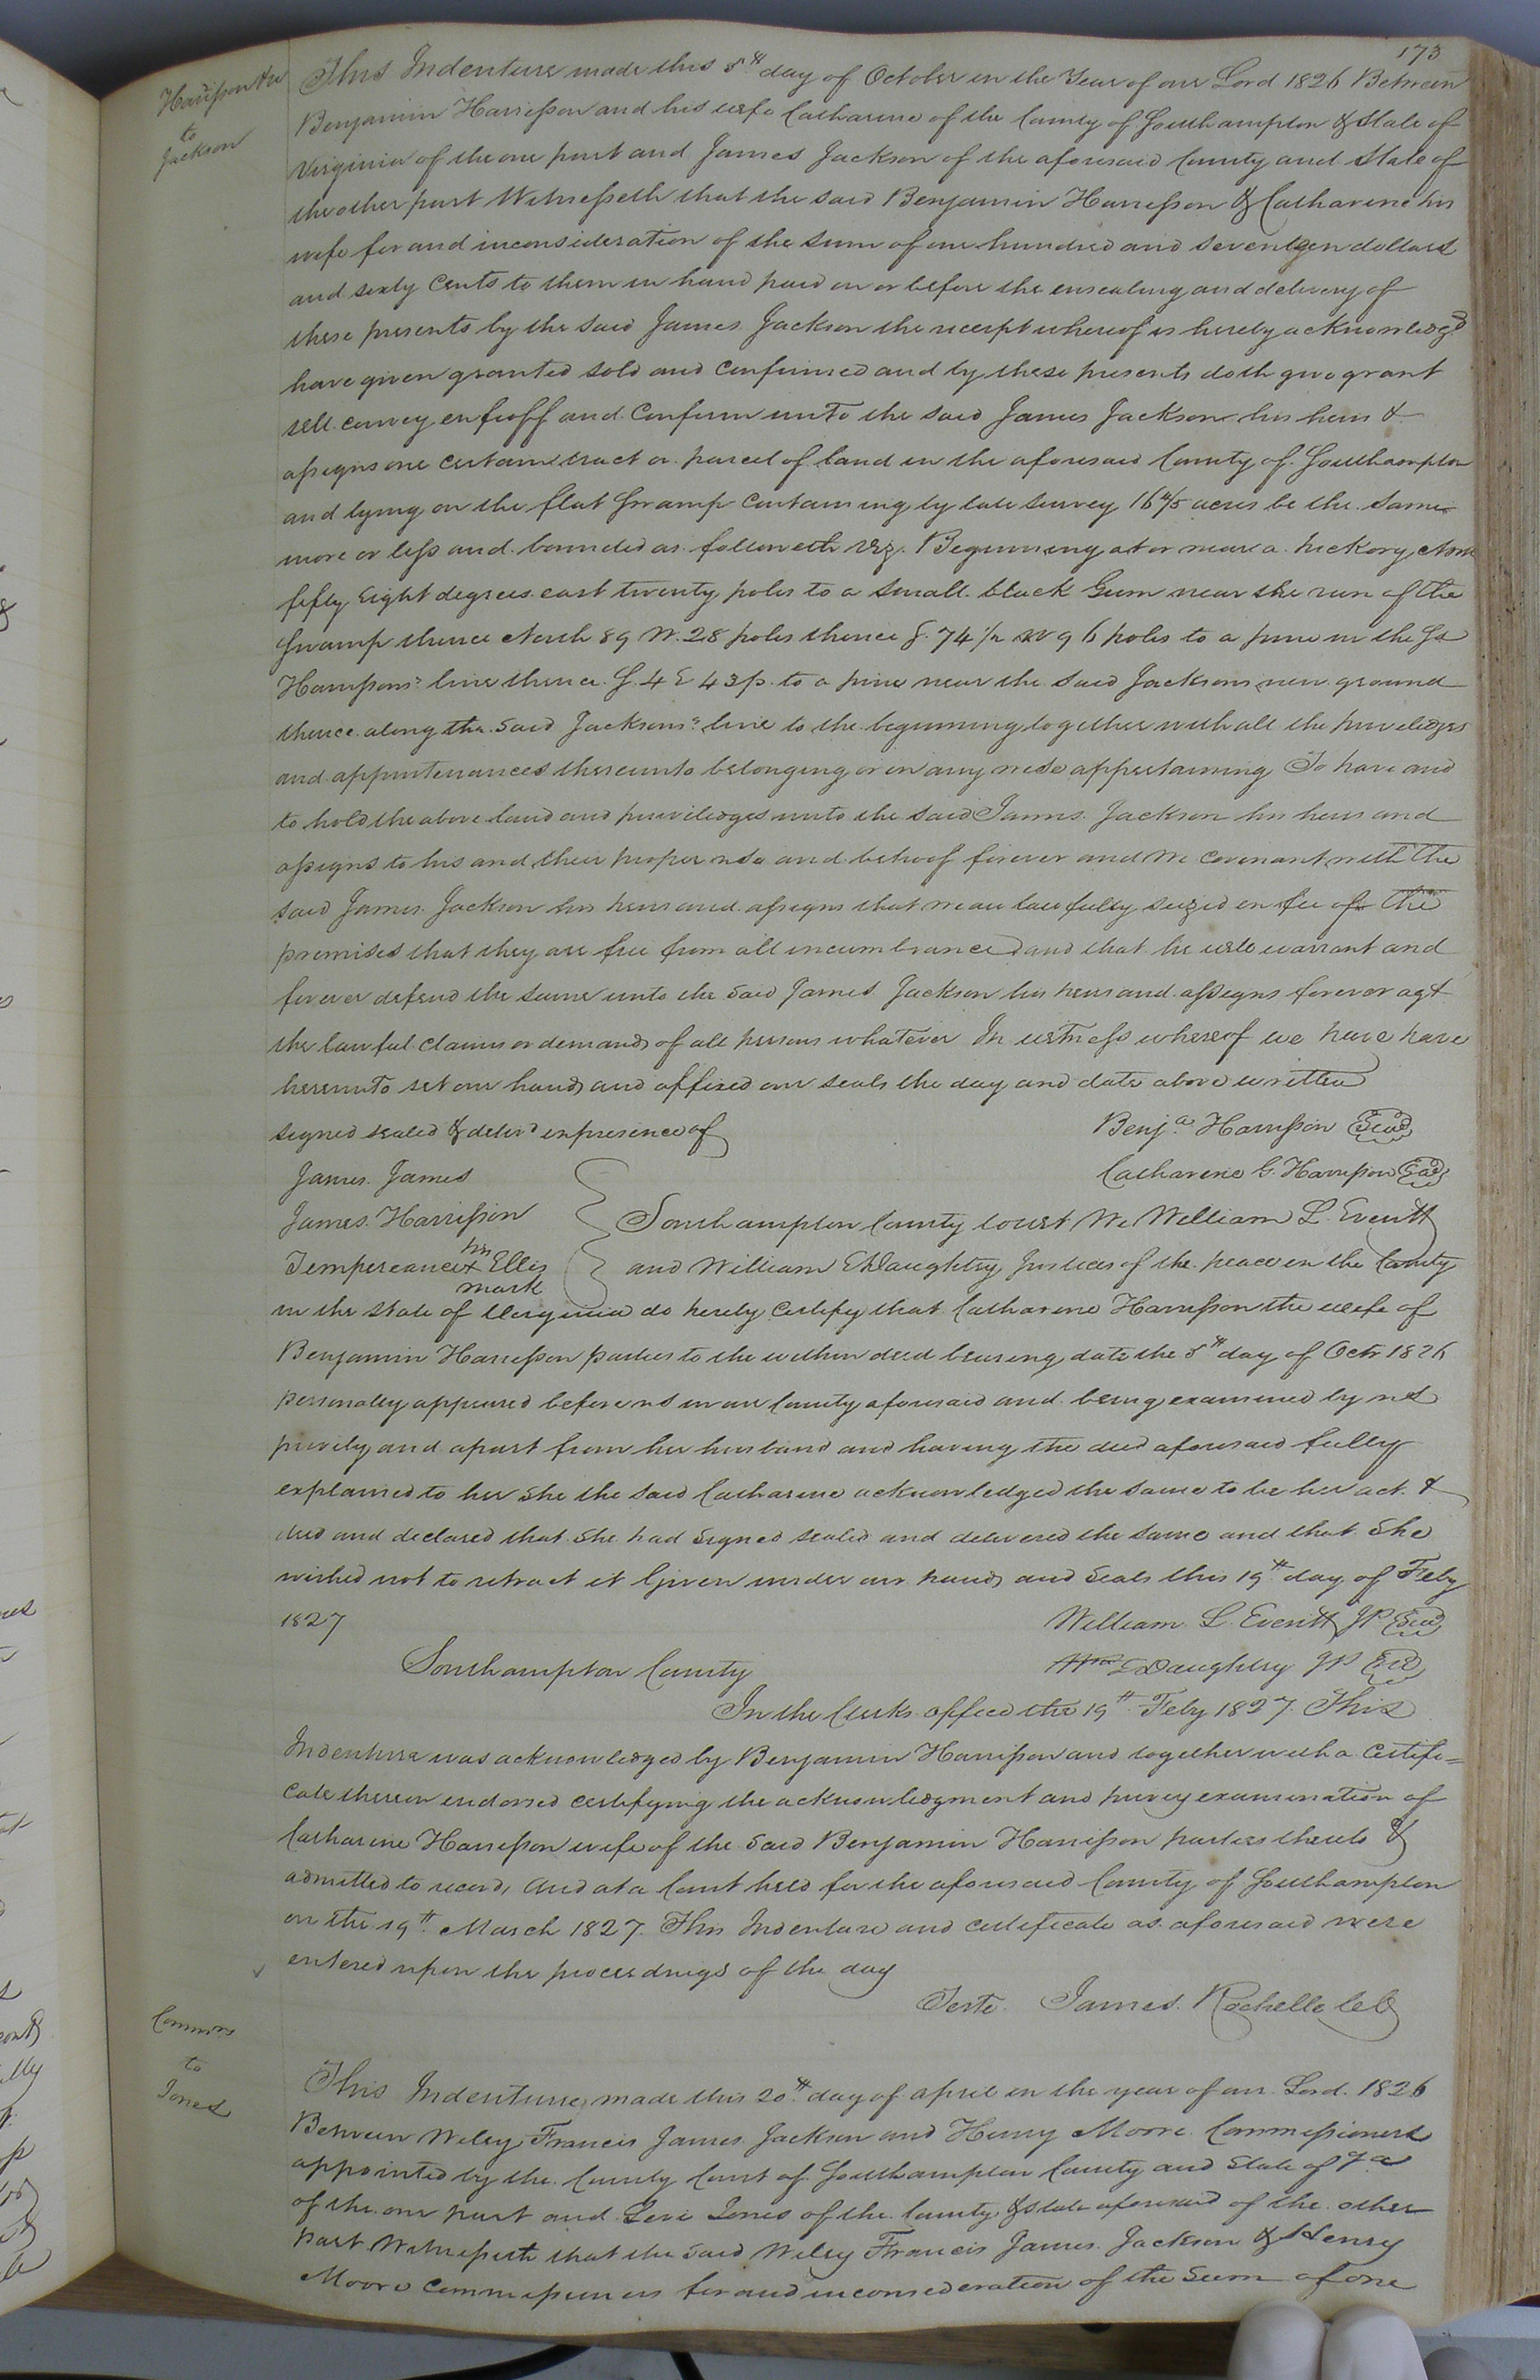 173
Harrisson & ux
to
Jackson
This Indenture made this 5th day of October in the Year of our Lord 1826 Between
Benjamin Harrisson and his wife Catharine of the County of Southampton & State of
Virginia of the one part and James Jackson of the aforesaid County and State of
the other part Witnesseth that the said Benjamin Harrisson & Catharine his
wife for and inconsideration of the sum of one hundred and seventeen dollars
and sixty Cents to them in hand paid on or before the ensealing and delivery of
these presents by the said James Jackson the receipt whereof is hereby acknowledgd
have given granted sold and confirmed and by these presents doth give grant
sell convey enfeoff and Confirm unto the said James Jackson his heirs &
assigns one certain tract or parcel of land in the aforesaid County of Southampton
and lying on the flat Swamp containing by late survey 16 4/5 acres be the same
more or less and bounded as followeth Viz. Beginning at or near a hickory, North
fifty Eight degrees east twenty poles to a small black Gum near the run of the
Swamp thence North 89 W. 28 poles thence S. 74 1/2 W 96 poles to a pine in the Sd
Harrissons line thence S. 4 E 43 p. to a pine near the said Jacksons new ground
thence along the said Jacksons line to the beginning together with all the priviledges
and appurtenances thereunto belonging or in any wise appertaining To have and
to hold the above land and priviledges unto the said James Jackson his heirs and
assigns to his and their proper use and behoof forever and we covenant with the
said James Jackson his heirs and assigns that we are lawfully seized in fee of the
premises that they are free from all incumbrances and that he will warrant and
forever defend the same unto the said James Jackson his heirs and assigns forever agt
the lawful claims or demands of all persons whatever In witness whereof we have have
hereunto set our hands and affixed our seals the day and date above written
signed sealed & delivd in presence of Benja Harrisson Seal
James James Catharine G. Harrisson Seal
James Harrisson Southampton County Court We William L. Everitt
Tempereance his x mark Ellis and William E Daughtry Justices of the peace in the County
in the State of Virginia do hereby certify that Catharine Harrisson the wife of
Benjamin Harrisson parties to the within deed bearing date the 5th day of Octr 1826
personally appeared before us in our County aforesaid and being examined by us
privily and apart from her husband and having the deed aforesaid fully
explained to her She the said Catharine acknowledged the same to be her act &
deed and declared that She had signed sealed and delivered the same and that She
wished not to retract it Given under our hands and Seals this 19th day of Feby
1827 William L. Everitt JP Seal
Southampton County Wm E Daughtry JP Seal
In the Clerks office the 19th Feby 1827. This
Indenture was acknowledged by Benjamin Harrisson and together with a Certifi=
cate thereon endorsed certifying the acknowledgment and privy examination of
Catharine Harrisson wife of the said Benjamin Harrisson parties thereto &
admitted to record, And at a Court held for the aforesaid County of Southampton
on the 19th March 1827. This Indenture and certificate as aforesaid were
entered upon the proceedings of the day
Teste. James Rochelle CC
Commrs
to
Jones
This Indenture, made this 20th day of april in the year of our Lord. 1826
Between Wiley Francis James Jackson and Henry Moore Commissioners
appointed by the County Court of Southampton County and State of Va
of the one part and Levi Jones of the County & State aforesaid of the other
part Witnesseth that the said Wiley Francis James Jackson & Henry
Moore Commissioners for and inconsideration of the sum of one